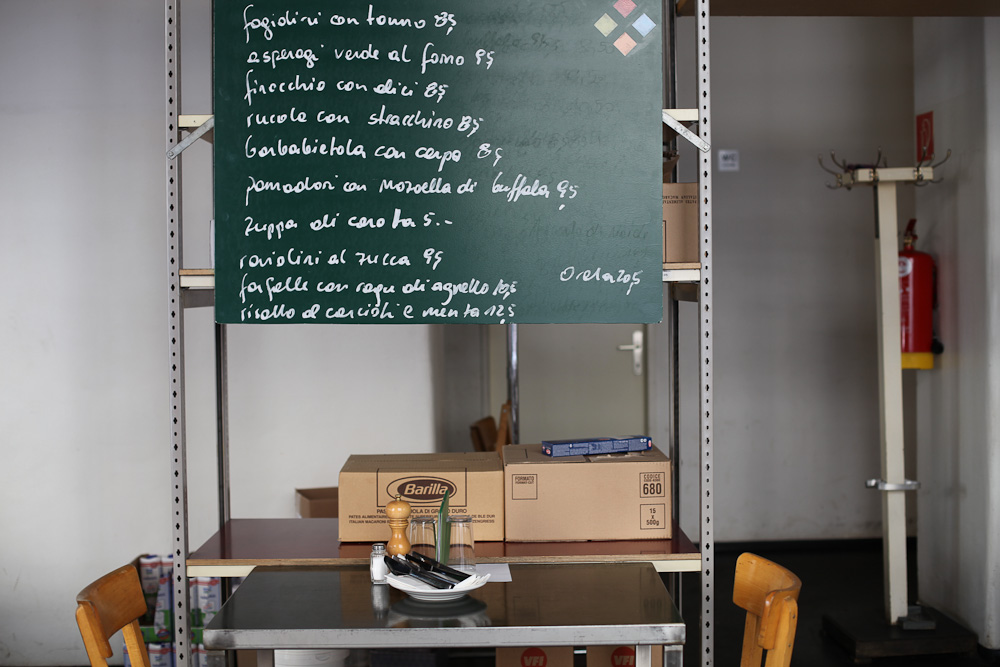 fagiolini con tonno 8,5
asperagi verde al forno 9,5
finocchio con alici 8,5
rucola con stracchino 8,5
barbabietola con capra 8,5
pomodori con mozzella di buffala 9,5
zuppa di carotta 5.-
raviolini al zucca 9,5
farfalle con ragu di agnello 10,5
risotto al carciofi e menta 12,5
Orata 20,5
Barilla
FORMATO
CODICE
680
15 x 500g
ITALIAN MACARONI
VFI
VFI